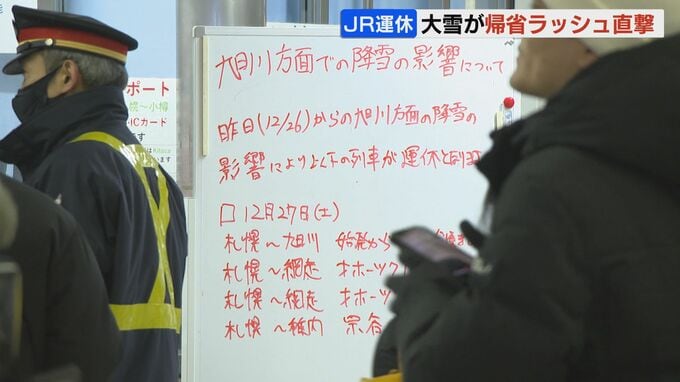 JR運休 大雪が帰省ラッシュ直撃
旭川方面での降雪の影響について
昨日(12/26)からの旭川方面の降雪の
影響により以下の列車が運休と
□ 12月27日(土)
札幌～旭川 始発から
札幌～網走 オホーツク
札幌～網走 オホーツ
札幌～稚内 宗谷
ポート
幌～小樽
ICカード
です
Kitaca